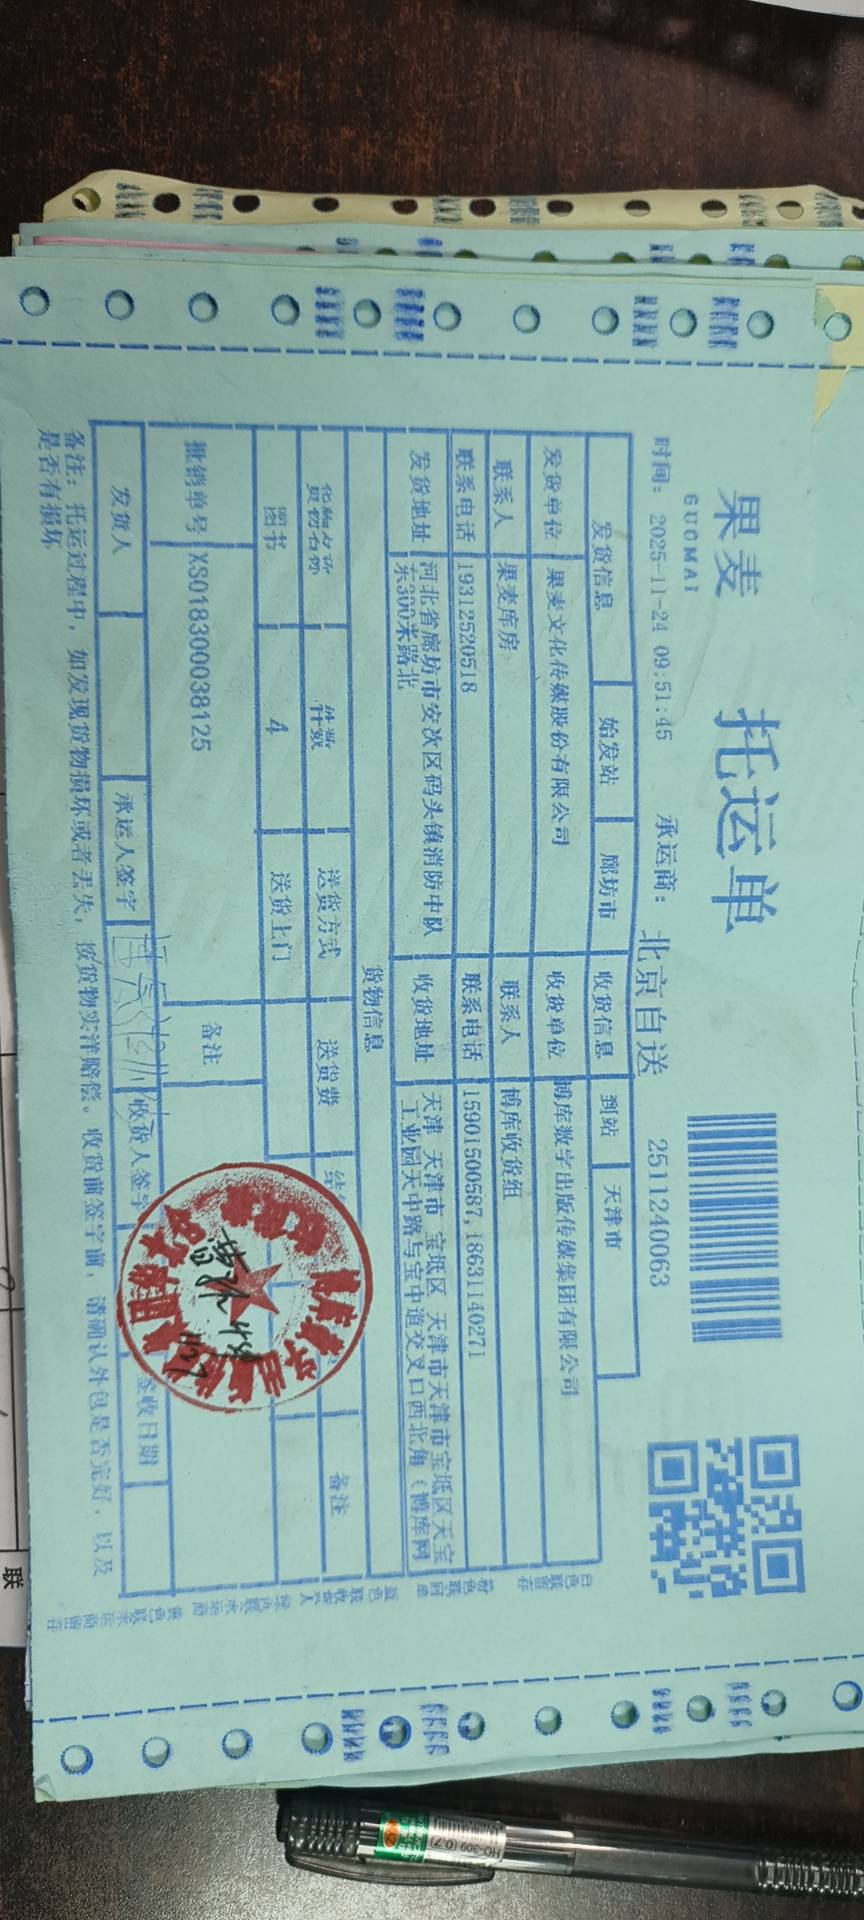 果麦 托运单
GUOMAI
时间： 2025-11-24 09:51:45 承运商： 北京自送 2511240063
发货信息 始发站 廊坊市 收货信息 到站 天津市
发货单位 果麦文化传媒股份有限公司 收货单位 博库数字出版传媒集团有限公司
联系人 果麦库房 联系人 博库收货组
联系电话 19312520518 联系电话 15901500587,18631140271
发货地址 河北省廊坊市安次区码头镇消防中队 收货地址 天津 天津市 宝坻区 天津市天津市宝坻区天宝
东300米路北 工业园天中路与宝中道交叉口西北角（博库网
货物信息
货物名称 件数 送货方式 送货费 结 备注
图书 4 送货上门
批销单号 XS018300038125 备注
发货人 承运人签字 收货人签字 签收日期
备注： 托运过程中，如发现货物损坏或者丢失，按货物实洋赔偿。收货前签字前，请确认外包是否完好，以及
是否有损坏
白色联留存 粉色联回单 蓝色联收货人 绿色联承运商 黄色联承运商留存
HO-309 (0.7)
联